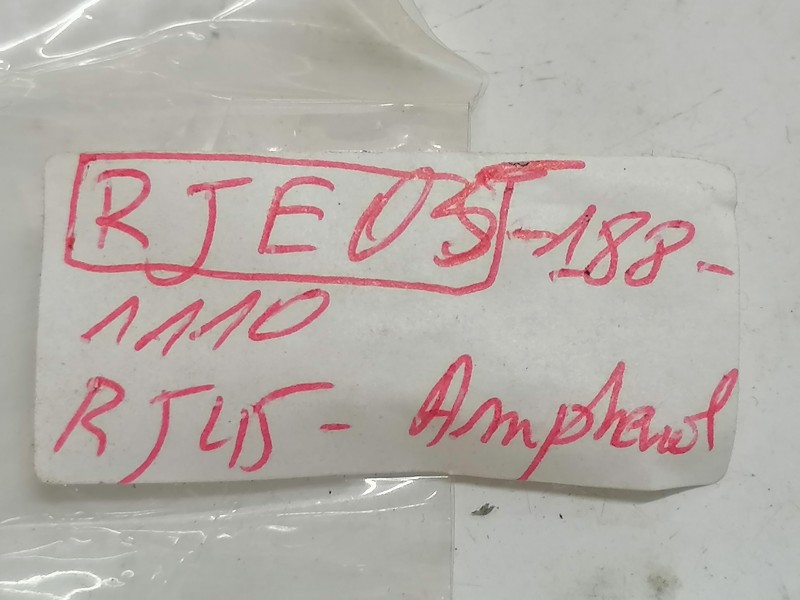 RJE05-188-
1110
RJ45- Amphenol